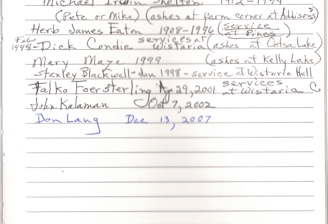 Michael Irwin Shelton 1912-1994
(Pete or Mike) (ashes at farm corner at Addisons)
Herb James Eaton 1908-1996 (service at Pines)
Feb 1999-Dick Condie services at Wistaria (ashes at Ootsa Lake)
Mary Maze 1999 (ashes at Kelly Lake)
Stanley Blackwell-Jan 1998-service at Wistaria Hall
Falko Foersterling Apr 29, 2001 services at Wistaria C
John Kalaman Oct 7, 2002
Don Lang Dec 13, 2007